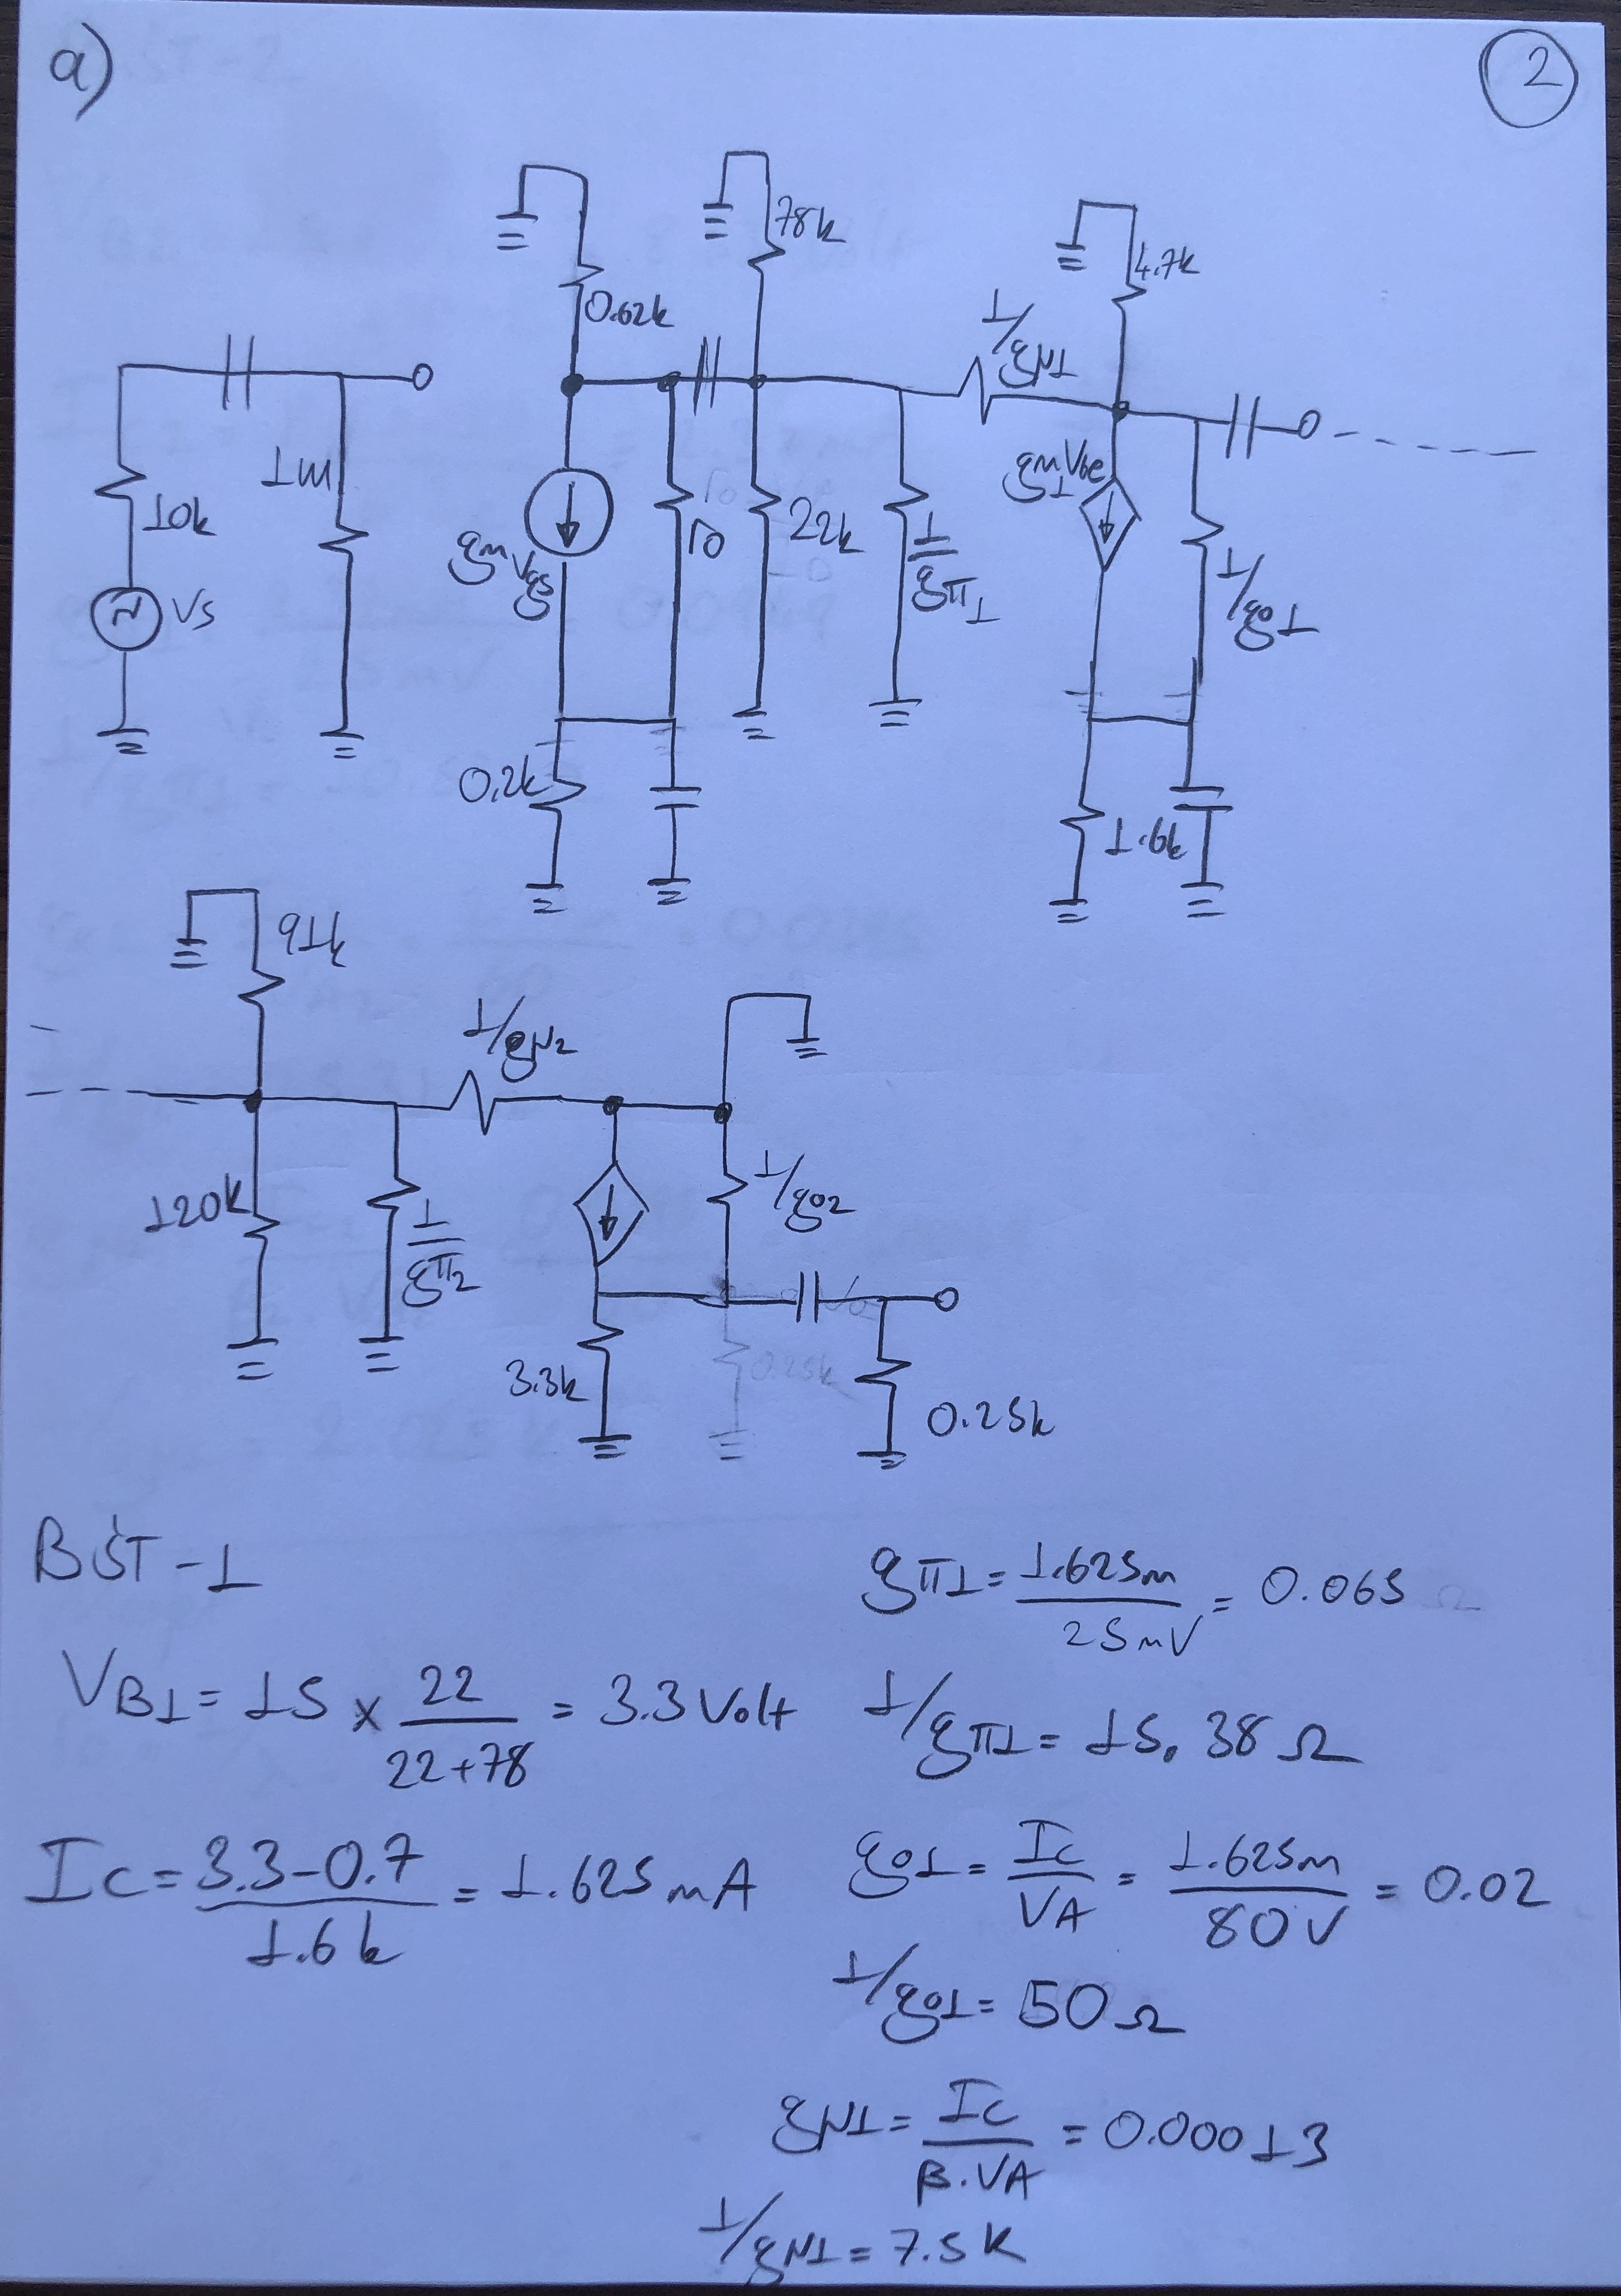 a)
2
78k
0.62k
4.7k
1/gμ1
1M
10k
Vs
gmVgs
ro
22k
1/gπ1
gm1Vbe
1/go1
0.2k
1.6k
91k
1/gμ2
120k
1/gπ2
1/go2
3.3k
0.25k
0.25k
BJT-1
gπ1 = 1.625m / 25mV = 0.065
VB1 = 15 x 22 / 22+78 = 3.3 Volt
1/gπ1 = 15.38 Ω
Ic = 3.3-0.7 / 1.6k = 1.625 mA
go1 = Ic / VA = 1.625m / 80V = 0.02
1/go1 = 50 Ω
gμ1 = Ic / β.VA = 0.00013
1/gμ1 = 7.5K